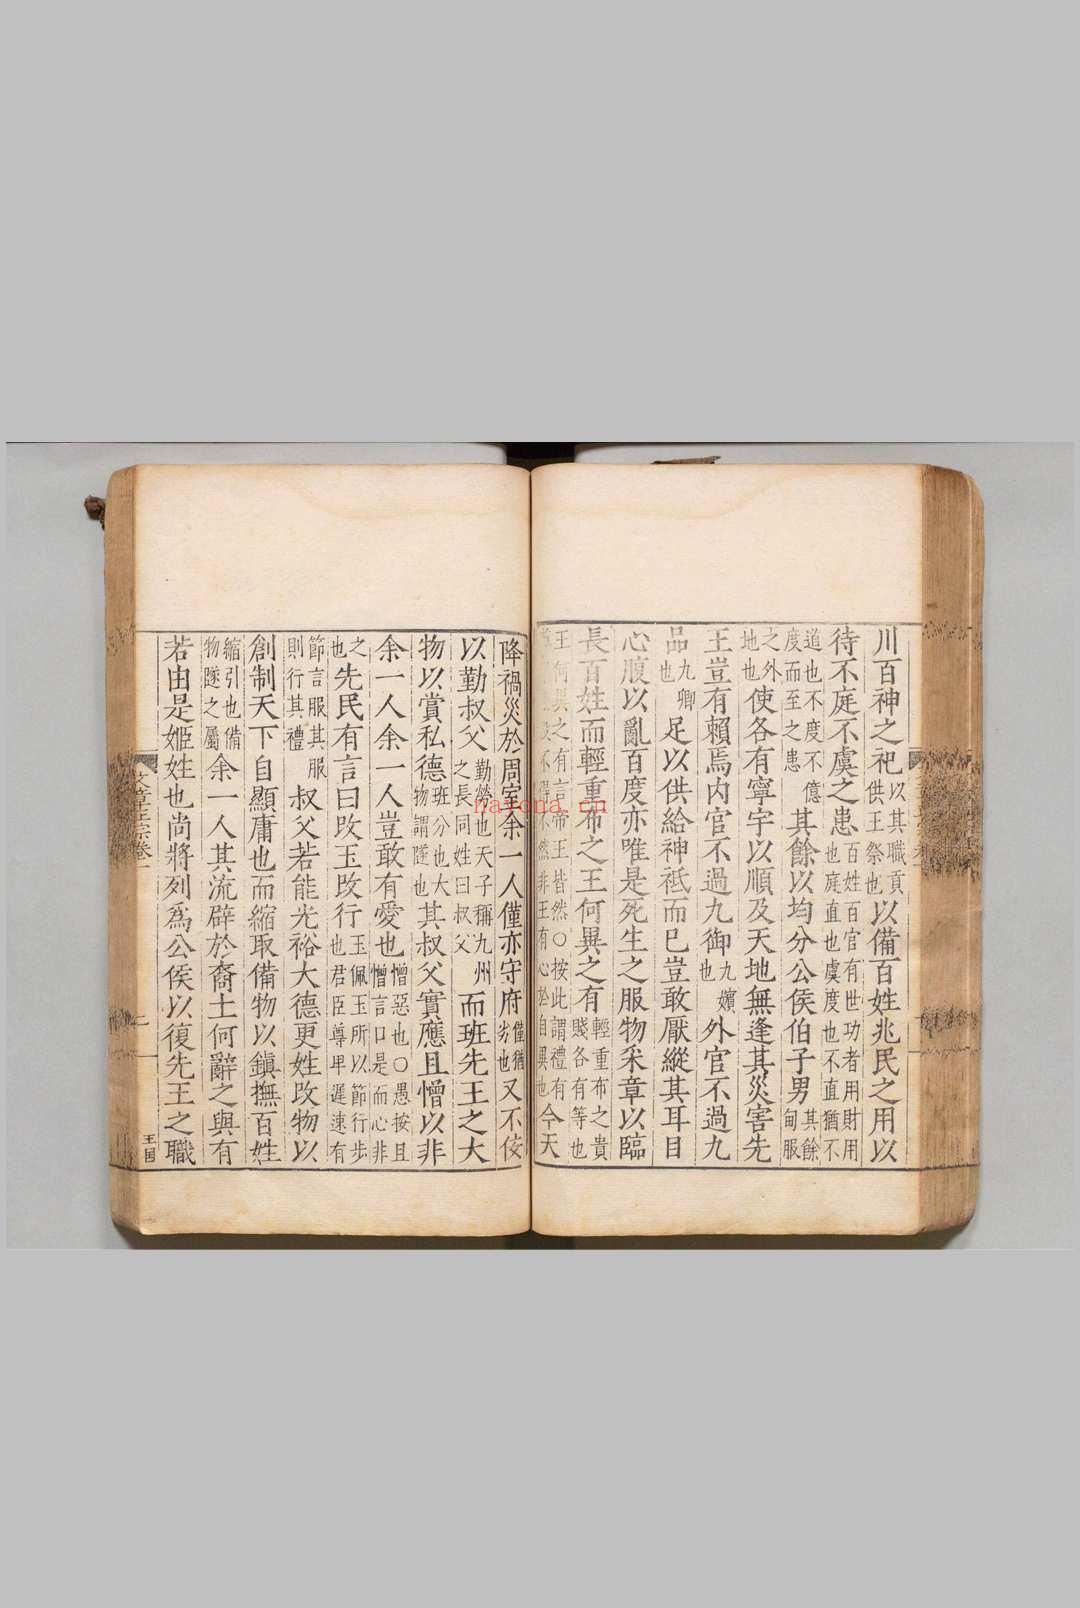 川百神之祀以其職貢供王祭也以備百姓兆民之用以
待不庭不虞之患百姓百官有世功者用財用也庭直也虞度也不直猶不
道也不度不億度而至之患其餘以均分公侯伯子男其餘甸服
之外地也使各有寧宇以順及天地無逢其災害先
王豈有賴焉內官不過九御九嬪也外官不過九
品九卿也足以供給神祇而已豈敢厭縱其耳目
心腹以亂百度亦唯是死生之服物采章以臨
長百姓而輕重布之王何異之有輕重布之貴賤各有等也
王何異之有言帝王皆然〇按此謂禮有不然非王有心於自異也今天
降禍災於周室余一人僅亦守府僅猶劣也又不佞
以勤叔父勤勞也天子稱九州之長同姓曰叔父而班先王之大
物以賞私德班分也大物謂隧也其叔父實應且憎以非
余一人余一人豈敢有愛也憎惡也〇愚按且憎言口是而心非
之也先民有言曰改玉改行玉佩玉所以節行步也君臣尊卑遲速有
節言服其服則行其禮叔父若能光裕大德更姓改物以
創制天下自顯庸也而縮取備物以鎮撫百姓
縮引也備物隧之屬余一人其流辟於裔土何辭之與有
若由是姬姓也尚將列爲公侯以復先王之職
文章正宗卷一
二
王国
nayona.cn